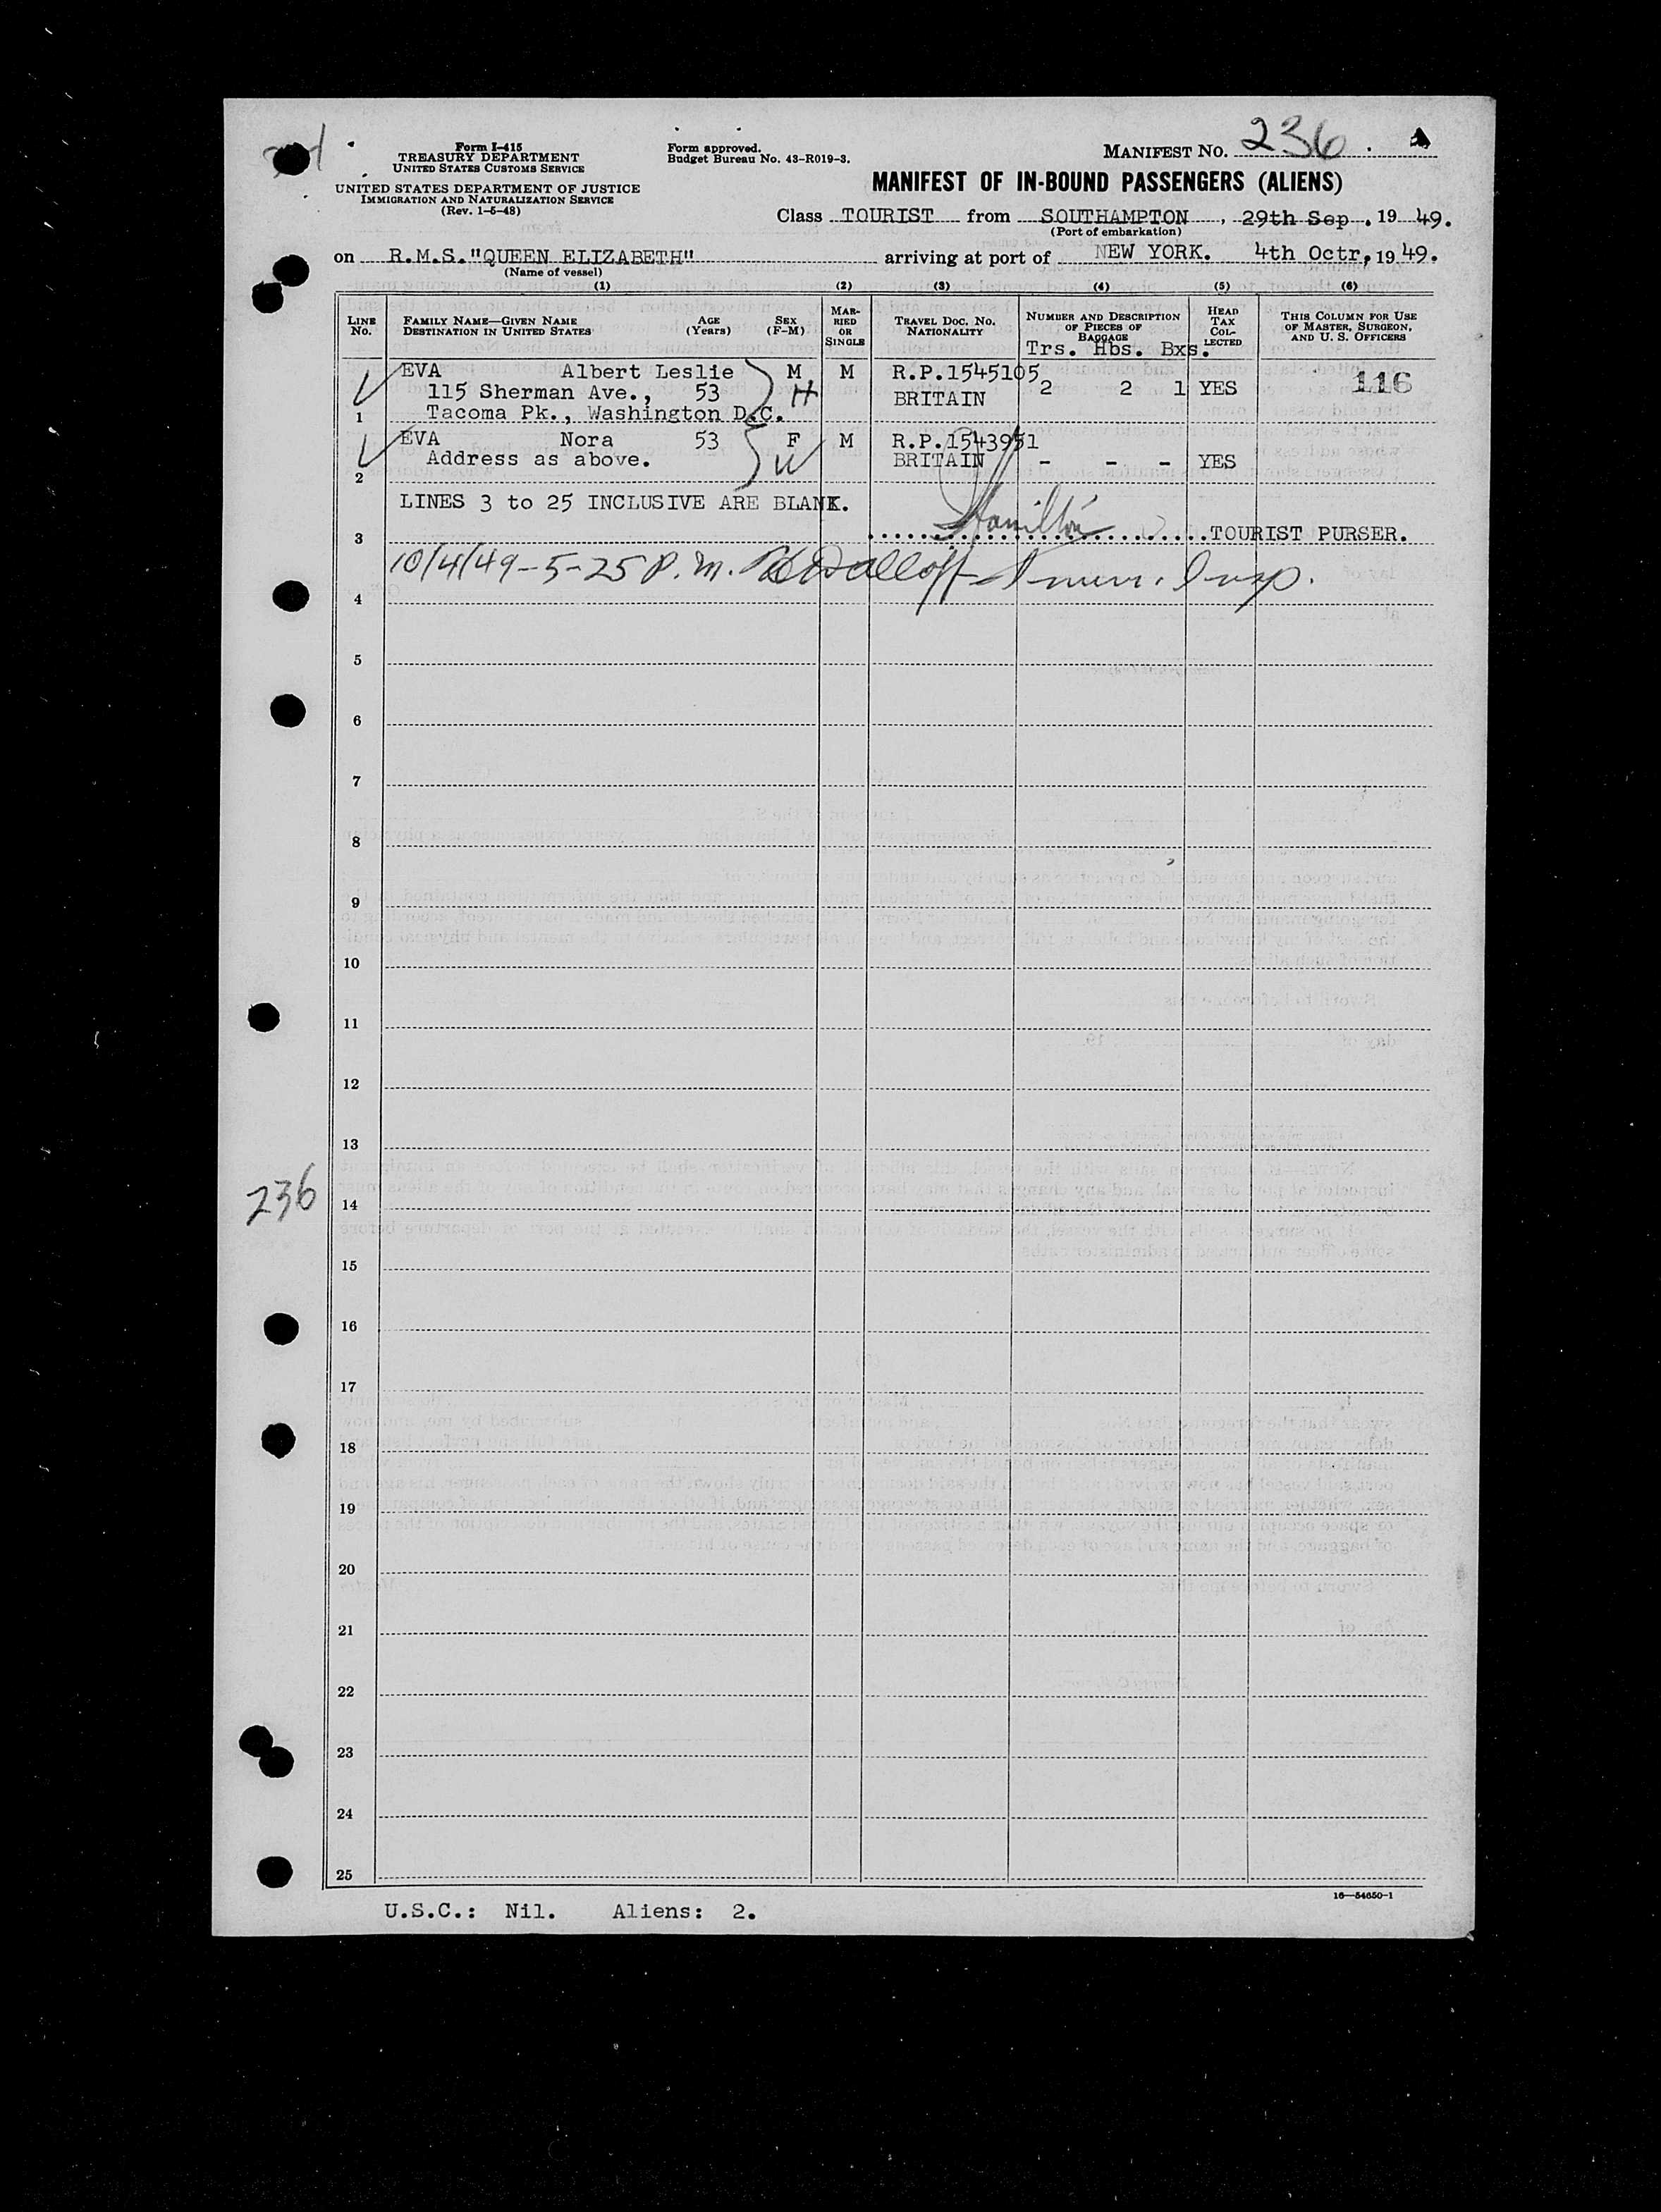 Form I-415
TREASURY DEPARTMENT
UNITED STATES CUSTOMS SERVICE
UNITED STATES DEPARTMENT OF JUSTICE
IMMIGRATION AND NATURALIZATION SERVICE
(Rev. 1-5-48)
Form approved.
Budget Bureau No. 43-R019-3.
MANIFEST NO. 236
MANIFEST OF IN-BOUND PASSENGERS (ALIENS)
Class TOURIST from SOUTHAMPTON, 29th Sep. 19 49.
(Port of embarkation)
on R.M.S."QUEEN ELIZABETH" arriving at port of NEW YORK. 4th Octr, 19 49.
(Name of vessel)
(1) (2) (3) (4) (5) (6)
LINE No. FAMILY NAME—GIVEN NAME DESTINATION IN UNITED STATES AGE (Years) SEX (F-M) MARRIED OR SINGLE TRAVEL DOC. NO. NATIONALITY NUMBER AND DESCRIPTION OF PIECES OF BAGGAGE HEAD TAX COLLECTED THIS COLUMN FOR USE OF MASTER, SURGEON, AND U. S. OFFICERS
Trs. Hbs. Bxs.
EVA Albert Leslie M M R.P.1545105
115 Sherman Ave., 53 H BRITAIN 2 2 1 YES 116
1 Tacoma Pk., Washington D.C.
EVA Nora 53 F M R.P.1543951
Address as above. W BRITAIN - - - YES
2
LINES 3 to 25 INCLUSIVE ARE BLANK.
3 Hamilton TOURIST PURSER.
10/4/49-5-25 P.m. Immi. Insp.
4
5
6
7
8
9
10
11
12
13
236
14
15
16
17
18
19
20
21
22
23
24
25
16—54650-1
U.S.C.: Nil. Aliens: 2.